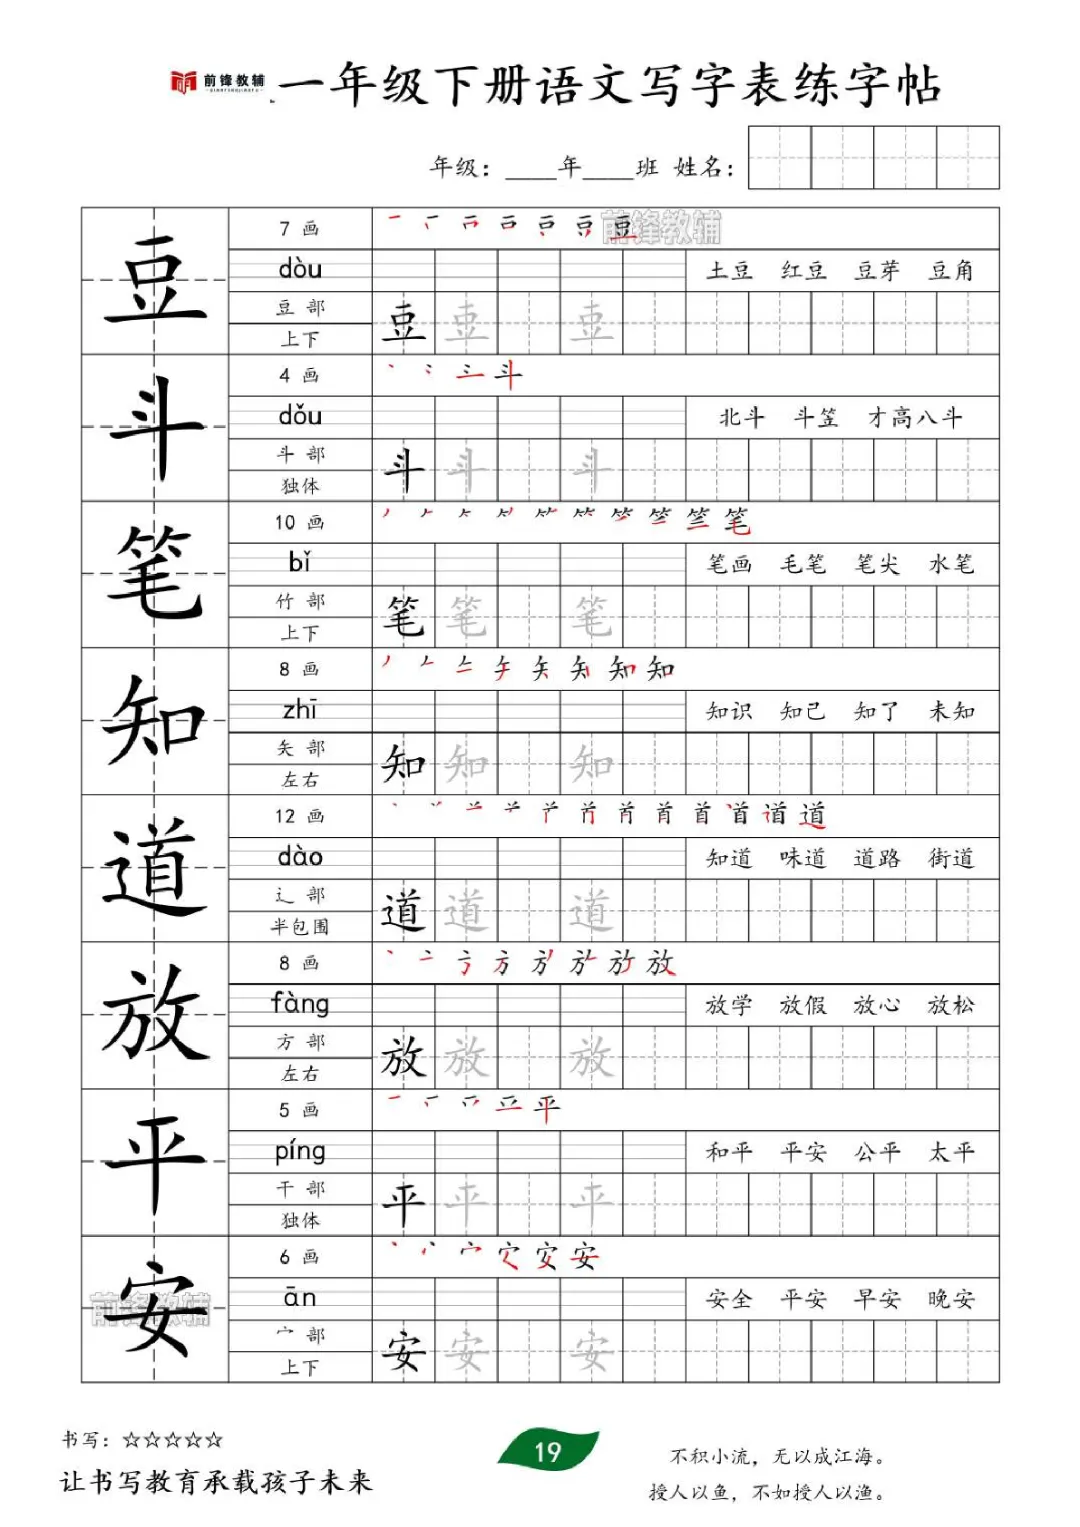 前锋教辅 一年级下册语文写字表练字帖
年级：____年____班 姓名：
豆
7 画
前锋教辅
dòu
土豆 红豆 豆芽 豆角
豆 部
豆 豆 豆
上下
斗
4 画
dǒu
北斗 斗笠 才高八斗
斗 部
斗 斗 斗
独体
笔
10 画
bǐ
笔画 毛笔 笔尖 水笔
竹 部
笔 笔 笔
上下
知
8 画
zhī
知识 知己 知了 未知
矢 部
知 知 知
左右
道
12 画
dào
知道 味道 道路 街道
辶 部
道 道 道
半包围
放
8 画
fàng
放学 放假 放心 放松
方 部
放 放 放
左右
平
5 画
píng
和平 平安 公平 太平
干 部
平 平 平
独体
安
前锋教辅
6 画
ān
安全 平安 早安 晚安
宀 部
安 安 安
上下
书写：☆☆☆☆☆
让书写教育承载孩子未来
19
不积小流，无以成江海。
授人以鱼，不如授人以渔。